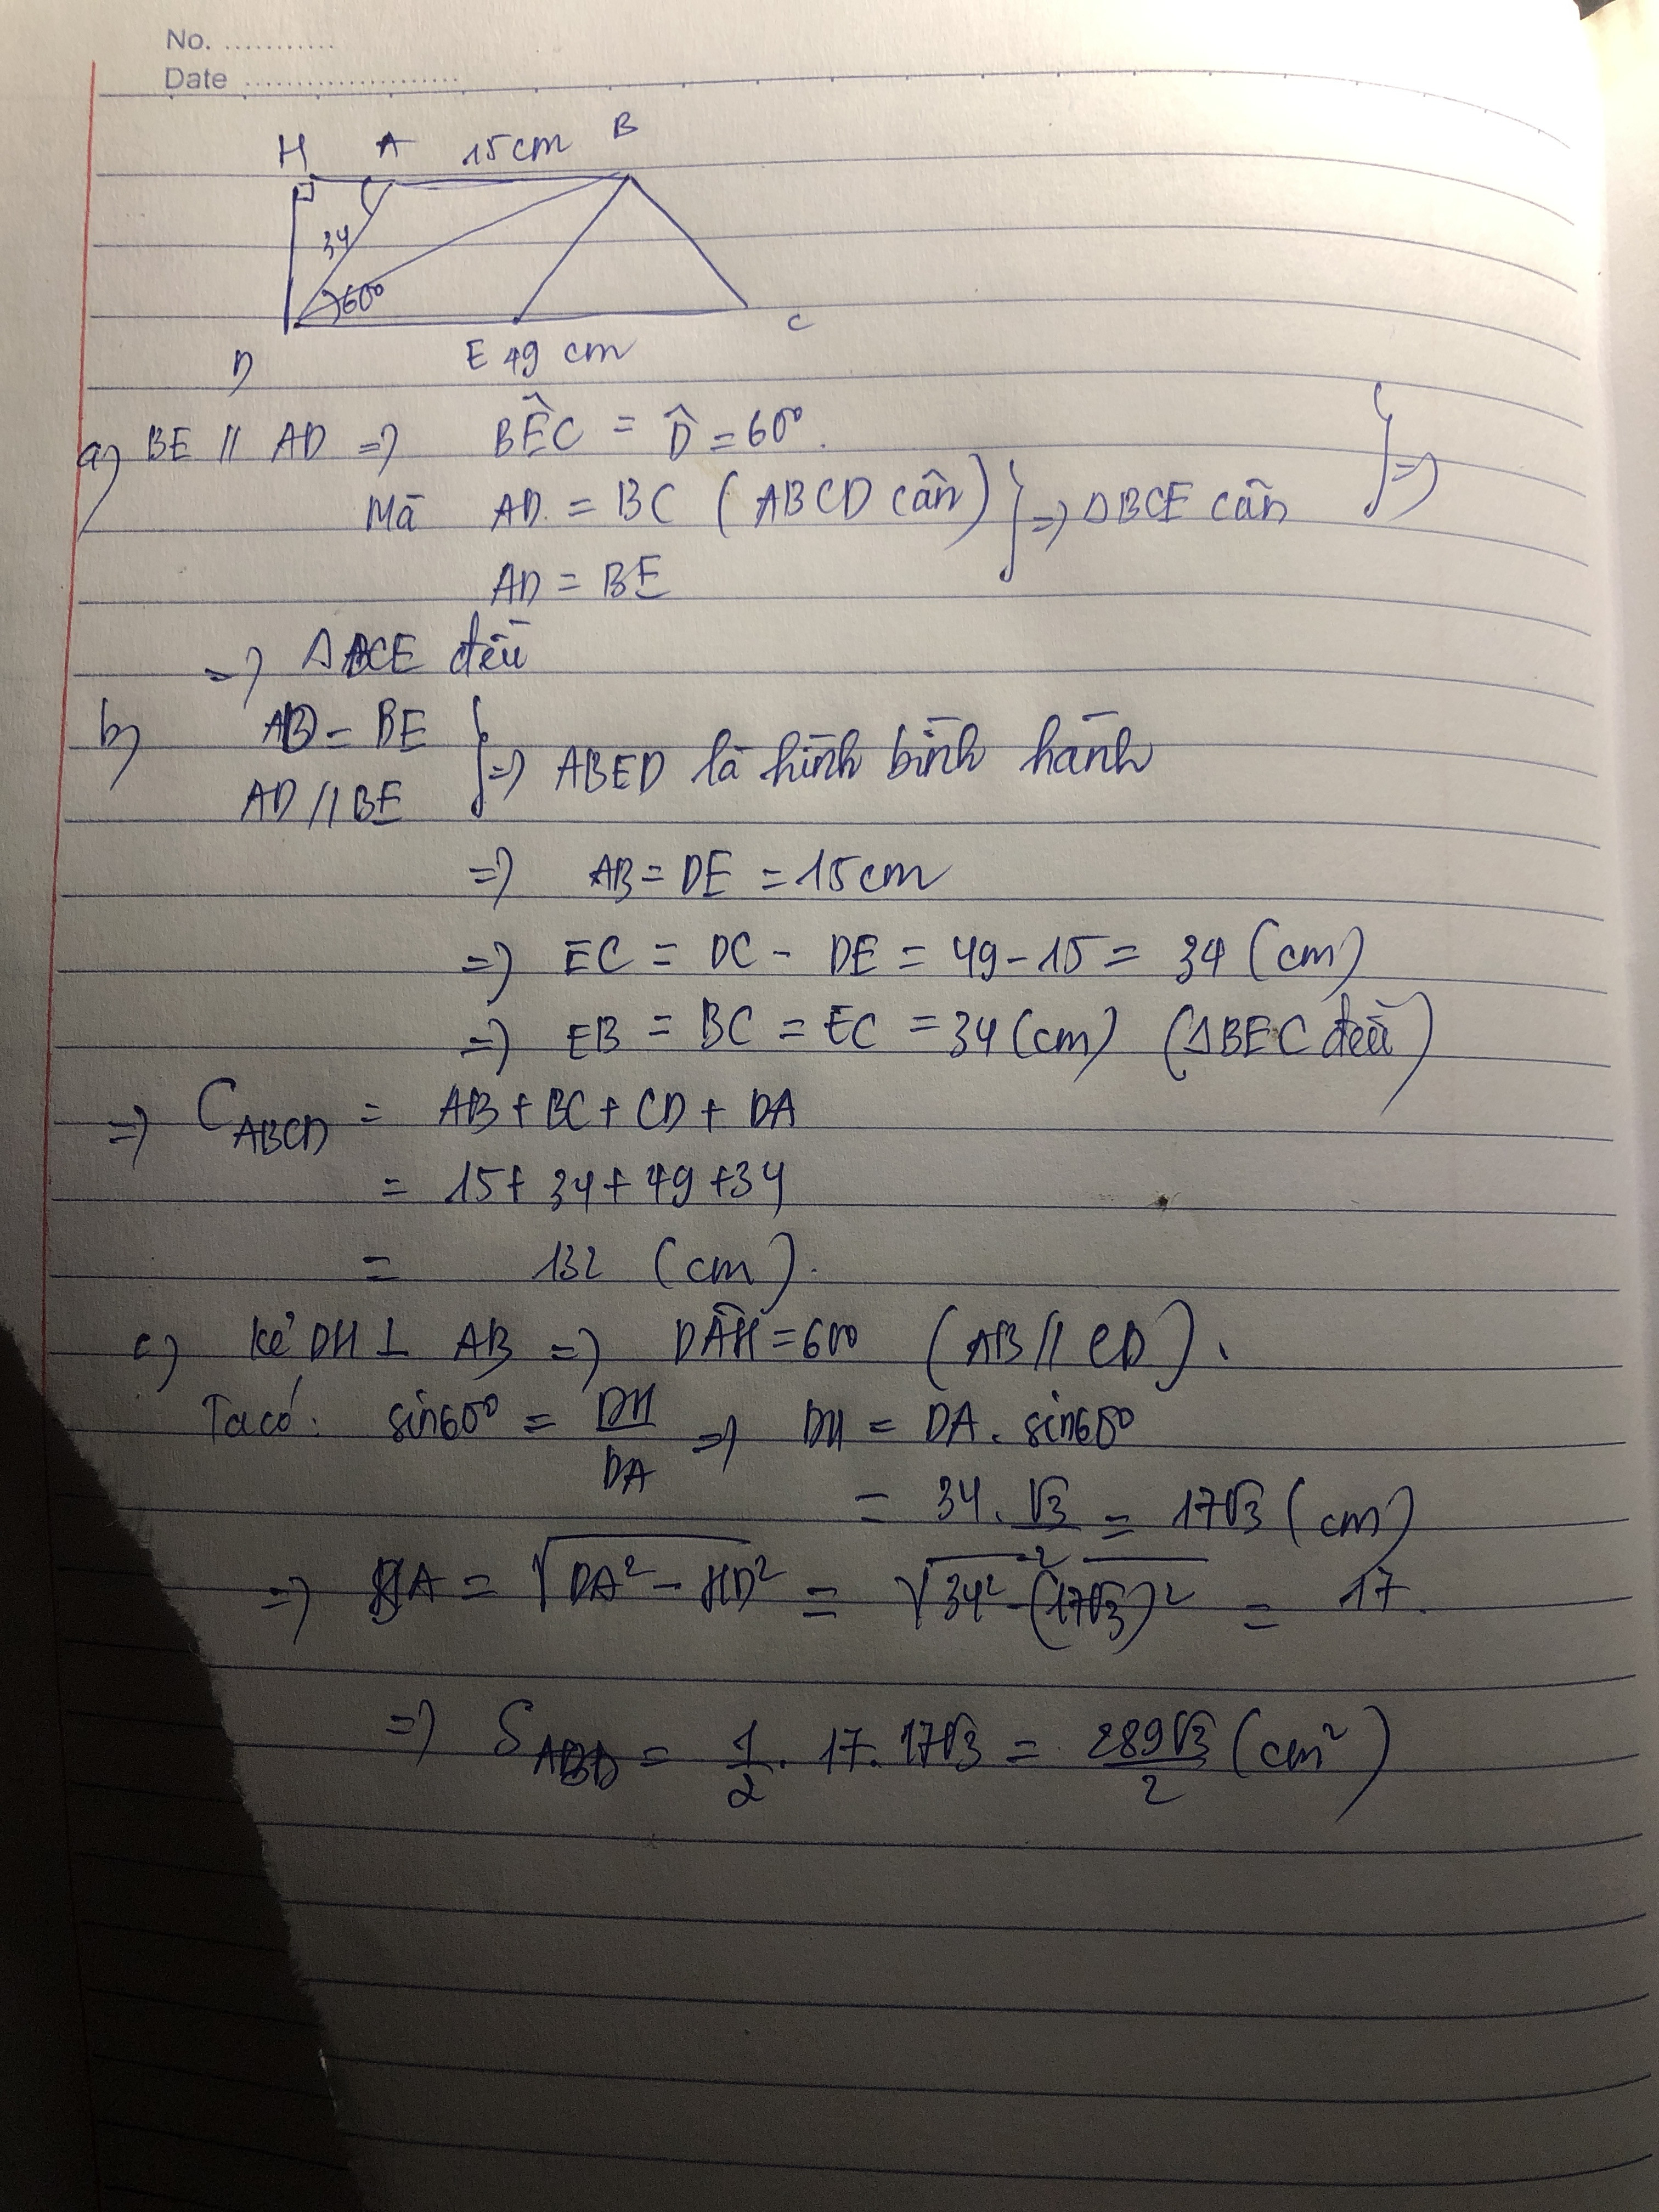 No. ...........
Date .....................
H A 15cm B
34
60°
D E 49 cm C
a) BE // AD => BÊC = D̂ = 60°.
Mà AD = BC (ABCD cân) } => ΔBCE cân } =>
AD = BE
=> ΔBCE đều
b) AD = BE } => ABED là hình bình hành
AD // BE
=> AB = DE = 15cm
=> EC = DC - DE = 49 - 15 = 34 (cm)
=> EB = BC = EC = 34 (cm) (ΔBEC đều)
=> C_ABCD = AB + BC + CD + DA
= 15 + 34 + 49 + 34
= 132 (cm).
c) Kẻ DH ⊥ AB => DÂH = 60° (AB // CD).
Ta có: sin60° = DH/DA => DH = DA. sin60°
= 34. √3/2 = 17√3 (cm)
=> HA = √(DA² - HD²) = √(34² - (17√3)²) = 17.
=> S_ABD = 1/2 . 17. 17√3 = 289√3/2 (cm²)